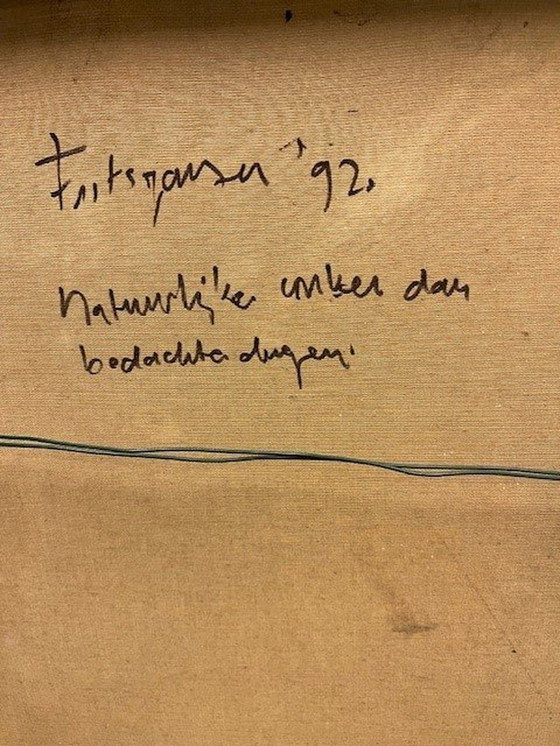 Frits Jansen '92.
Natuurlijke dan
bedachte dingen.